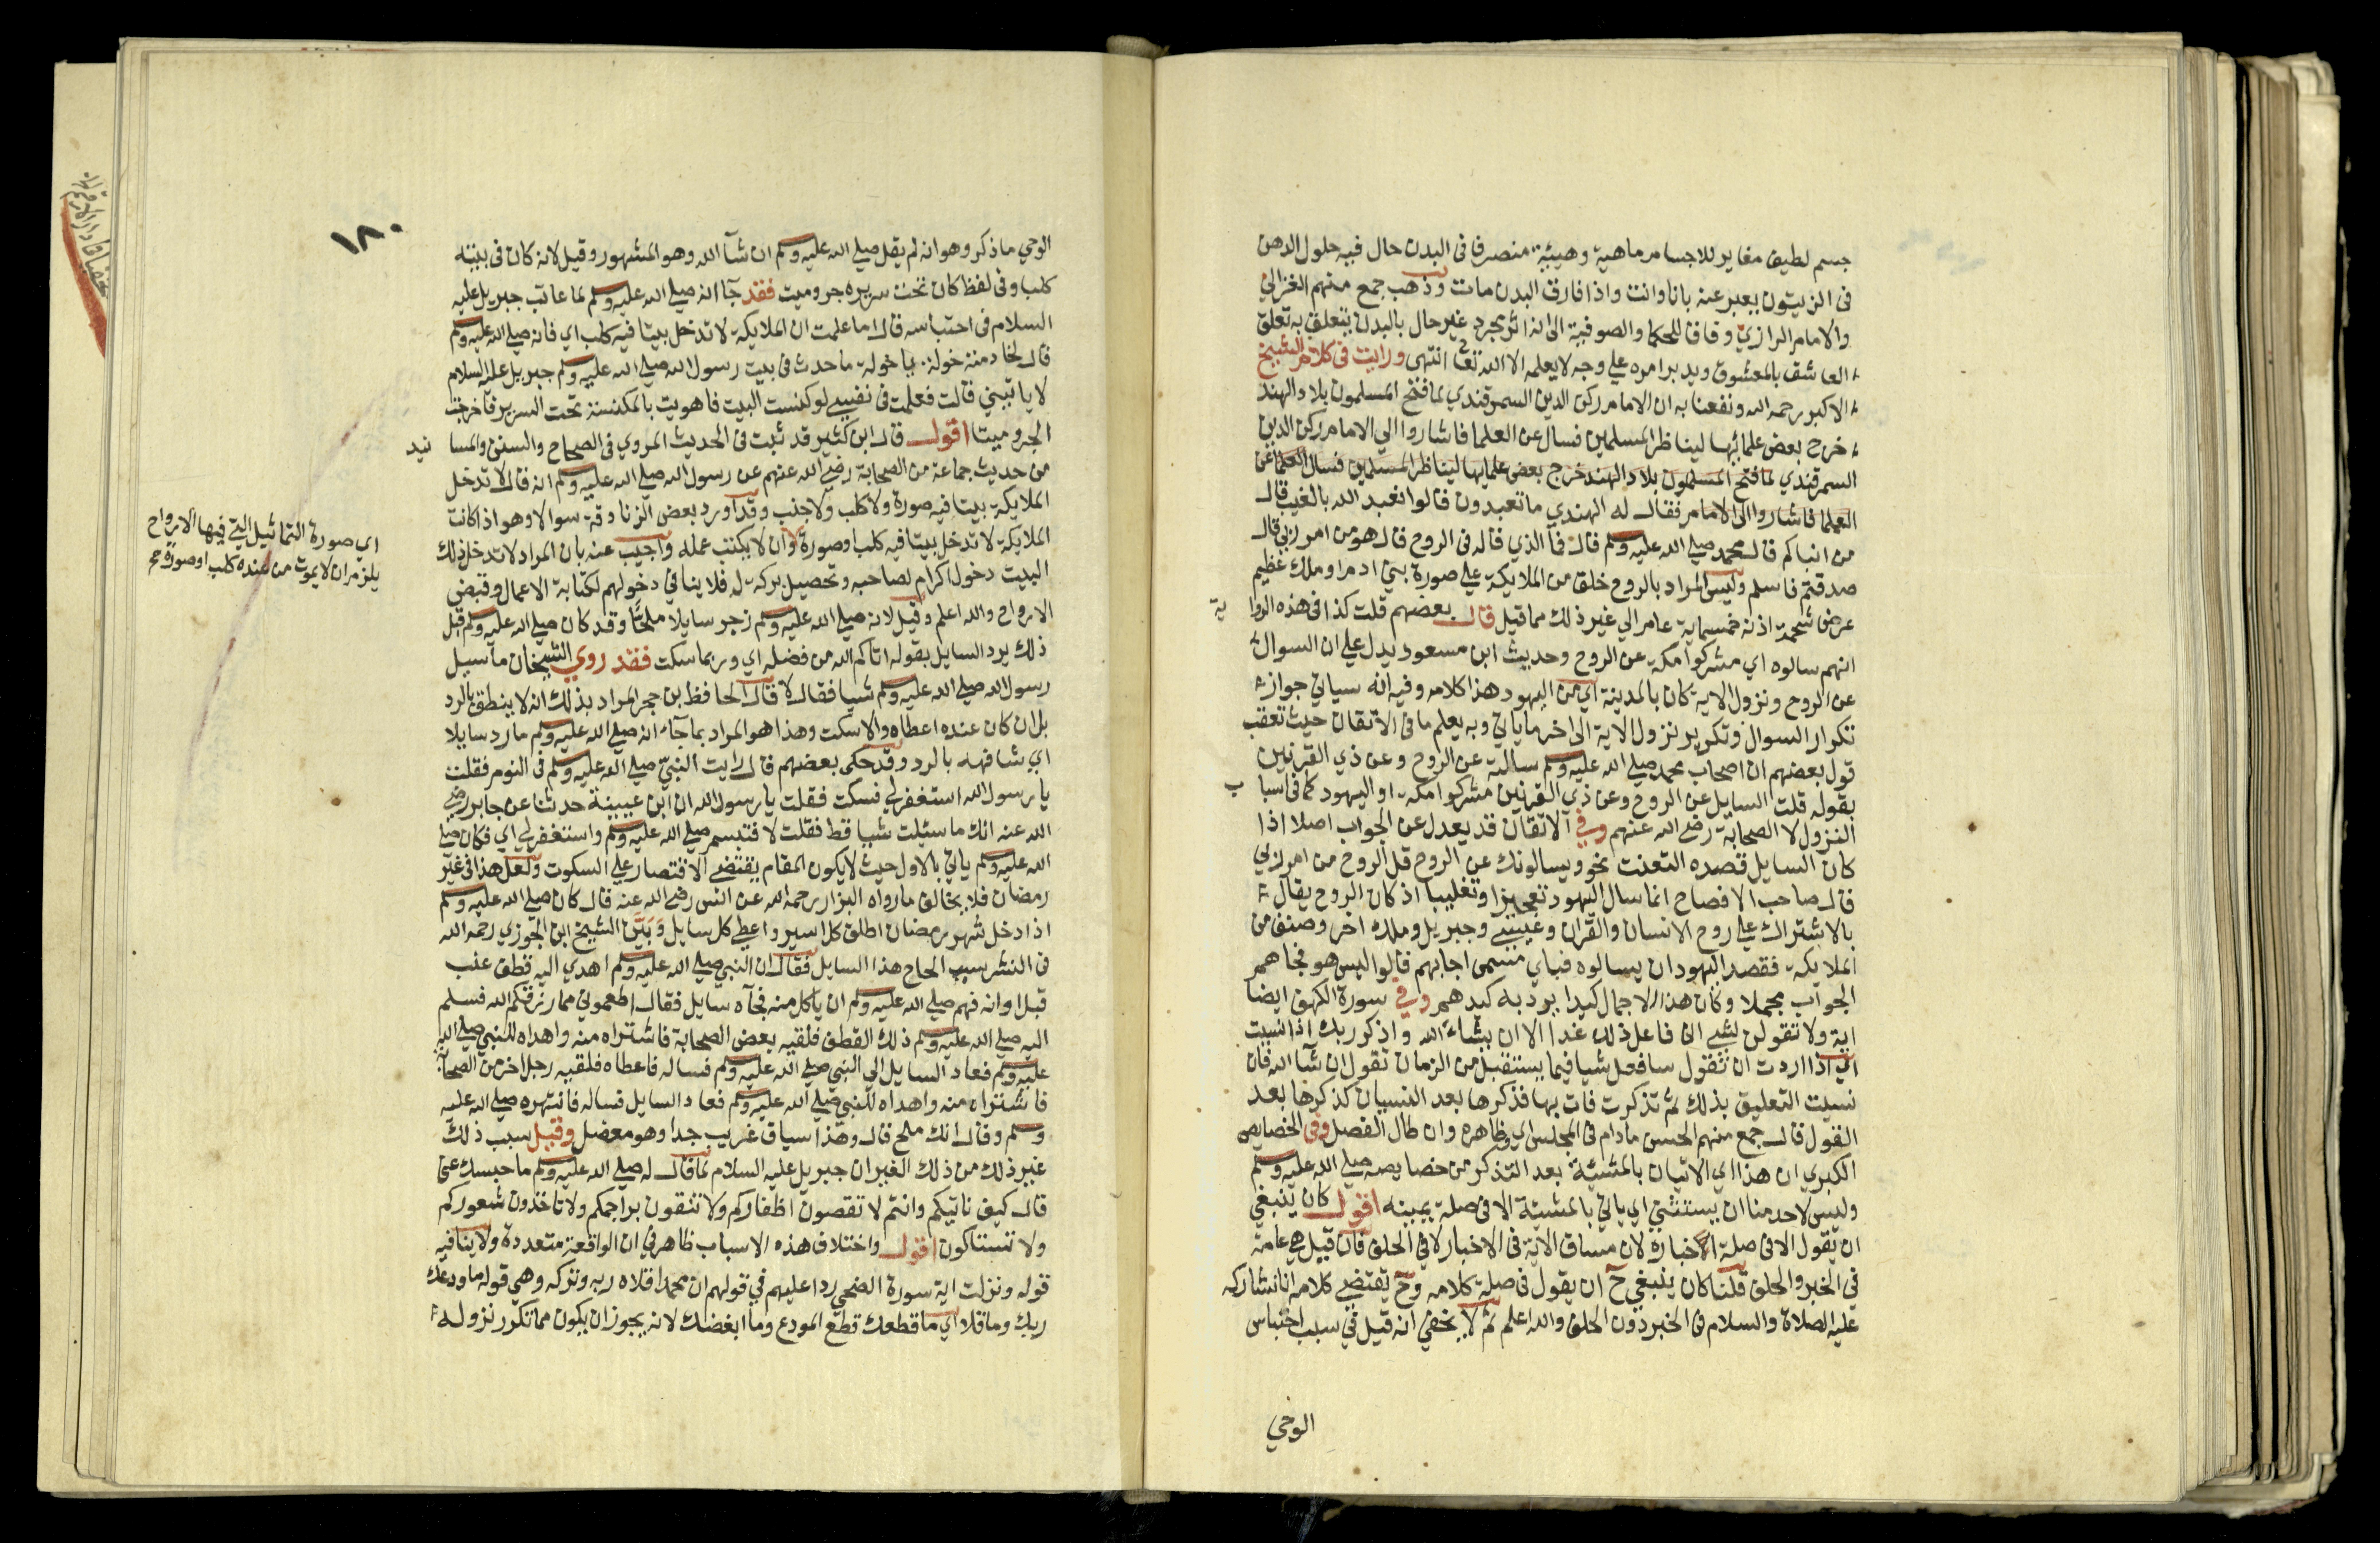 جسم لطيف مغاير للاجسام ماهية وهيئة متصرفا فى البدن حال فيه حلول الدهن
فى الزيتون يعبر عنه بانا وانت واذا فارق البدن مات وذهب جمع منهم الغزالي
والامام الرازي وفاقا للحكما والصوفية الى انه مجرد غير حال بالبدن يتعلق به تعلق
العاشق بالمعشوق ويدبر امره علي وجه لا يعلمه الا الله تعا انتهى ورايت فى كلام الشيخ
الاكبر رحمه الله ونفعنا به ان الامام ركن الدين السمرقندي لما فتح المسلمون بلاد الهند
خرج بعض علمائها ليناظر المسلمين فسال عن العلما فاشاروا الي الامام ركن الدين
السمرقندي لما فتح المسلمون بلاد الهند خرج بعض علمايها ليناظر المسلمين فسال العلما عن
العلما فاشاروا الى الامام فقال له الهندي ما تعبدون قالوا نعبد الله بالغيب قال
من انباكم قال محمد صلي الله عليه وسلم قال فما الذي قاله فى الروح قال هو من امر ربي قال
صدقتم فاسلم وليس المراد بالروح خلق من الملايكة علي صورة بني ادم او ملك عظيم
عرض شحمة اذنه خمسماية عام الي غير ذلك مما قيل قال بعضهم قلت كذا فى هذه الروا ية
انهم سالوه اي مشركوا مكة عن الروح وحديث ابن مسعود يدل علي ان السوال
عن الروح ونزول الاية كان بالمدينة اي من اليهود هذا كلامه وفيه انه سياتي جواز
تكرار السوال وتكرير نزول الاية الى اخر ما ياتي وبه يعلم ما فى الاتقان حيث تعقب
قول بعضهم ان اصحاب محمد صلي الله عليه وسلم سالته عن الروح وعن ذي القرنين
بقوله قلت السايل عن الروح وعن ذي القرنين مشركوا مكة او اليهود كما فى اسبا ب
النزول لا الصحابة رضي الله عنهم وفي الاتقان قد يعدل عن الجواب اصلا اذا
كان السايل قصده التعنت نحو ويسالونك عن الروح قل الروح من امر ربي
قال صاحب الافصاح انما سال اليهود تعجيزا وتغليبا اذ كان الروح يقال
بالاشتراك علي روح الانسان والقران وعيسي وجبريل وملك اخر وصنف من
الملايكة فقصد اليهود ان يسالوه فباي مسمى اجابهم قالوا ليس هو فجاهم
الجواب مجملا وكان هذا الاجمال كيدا يرد به كيدهم وفي سورة الكهف ايضا
اية ولا تقولن لشي اني فاعل ذلك غدا الا ان يشاء الله واذكر ربك اذا نسيت
اي اذا اردت ان تقول سافعل شيا فيما يستقبل من الزمان تقول ان شآ الله فان
نسيت التعليق بذلك ثم تذكرت فات بها فذكرها بعد النسيان كذكرها بعد
القول قال جمع منهم الحسن مادام فى المجلس اي وظاهره وان طال الفصل وفى الخصايص
الكبري ان هذا اي الاتيان بالمشيئة بعد التذكر من خصايصه صلي الله عليه وسلم
وليس لاحد منا ان يستثني اي ياتي بالمشيئة الا فى صلة يمينه اقول كان ينبغي
ان تقول الا فى صلة اخباره لان مساق الاية فى الاخبار لا في الحلف فان قيل هي عامة
في الخبر والحلف قلنا كان ينبغي ح ان يقول فى صلة كلامه وح يقتضي كلامه انا نشاركه
عليه الصلاة والسلام فى الخبر دون الحلف والله اعلم ثم لا يخفي انه قيل في سبب احتباس
الوحي
١٨٠
الوحي ما ذكر وهو انه لم يقل صلي الله عليه وسلم ان شآ الله وهو المشهور وقيل لانه كان فى بيته
كلب وفى لفظ كان تحت سريره جرو ميت فقد جآ انه صلي الله عليه وسلم لما عاتب جبريل عليه
السلام فى احتباسه قال اما علمت ان الملايكة لا تدخل بيتا فيه كلب اي فانه صلي الله عليه وسلم
قال لخادمته خولة يا خولة ما حدث فى بيت رسول الله صلي الله عليه وسلم جبريل عليه السلام
لا ياتيني قالت فعلمت فى نفسي لو كنست البيت فاهويت بالمكنسة تحت السرير فاخرجت
الجرو ميتا اقول قال ابن كثير قد ثبت فى الحديث المروي فى الصحاح والسنن والمسا نيد
من حديث جماعة من الصحابة رضي الله عنهم عن رسول الله صلي الله عليه وسلم انه قال لا تدخل
الملايكة بيتا فيه صورة ولا كلب ولا جنب وقد اورد بعض الزنادقة سوالا وهو اذا كانت
الملايكة لا تدخل بيتا فيه كلب او صورة وان لا يكتب عمله واجيب عنه بان المراد لا تدخل ذلك
البيت دخول اكرام لصاحبه وتحصيل بركة له فلا ينافي دخولهم لكتابة الاعمال وقبض
الارواح والله اعلم وقيل لانه صلي الله عليه وسلم زجر سايلا ملحا وقد كان صلي الله عليه وسلم قبل
ذلك يرد السايل بقوله اتاكم الله من فضله اي وربما سكت فقد روي الشيخان ما سيل
رسول الله صلي الله عليه وسلم شيا فقال لا قال الحافظ بن حجر المراد بذلك انه لا ينطق بالرد
بل ان كان عنده اعطاه والا سكت وهذا هو المراد بما جآء انه صلي الله عليه وسلم ما رد سايلا
اي شافهه بالرد وقد حكى بعضهم قال رايت النبي صلي الله عليه وسلم فى النوم فقلت
يا رسول الله استغفر لي فسكت فقلت يا رسول الله ان ابن عيينة حدثنا عن جابر رضي
الله عنه انك ما سئلت شيا قط فقلت لا فتبسم صلي الله عليه وسلم واستغفر لي اي فكان صلي
الله عليه وسلم ياتي بالاول حيث لا يكون المقام يقتضي الاقتصار علي السكوت ولعل هذا فى غير
رمضان فلا يخالف ما رواه البزار رحمه الله عن انس رضي الله عنه قال كان صلي الله عليه وسلم
اذا دخل شهر رمضان اطلق كل اسير واعطي كل سايل وبين الشيخ ابن الجوزي رحمه الله
فى النشر سبب الحاح هذا السايل فقال ان النبي صلي الله عليه وسلم اهدي اليه قطف عنب
قبل اوانه فهم صلي الله عليه وسلم ان ياكل منه فجآه سايل فقال اطعموني مما رزقكم الله فسلم
اليه صلي الله عليه وسلم ذلك القطف فلقيه بعض الصحابة فاشتراه منه واهداه للنبي صلي الله
عليه وسلم فعاد السايل الي النبي صلي الله عليه وسلم فساله فاعطاه فلقيه رجل اخر من الصحابة
فاشتراه منه واهداه للنبي صلي الله عليه وسلم فعاد السايل فساله فانتهره صلي الله عليه
وسلم وقال انك ملح قال وهذا سياق غريب جدا وهو معضل وقيل سبب ذلك
غير ذلك من ذلك الغير ان جبريل عليه السلام لما قال له صلي الله عليه وسلم ما حبسك عني
قال كيف ناتيكم وانتم لا تقصون اظفاركم ولا تنقون براجمكم ولا تاخذون شعوركم
ولا تستاكون اقول واختلاف هذه الاسباب ظاهر في ان الواقعة متعددة ولا ينافيه
قوله ونزلت اية سورة الضحي ردا عليهم في قولهم ان محمدا قلاه ربه وتركه وهي قوله ما ودعك
ربك وما قلا اي ما قطعك قطع المودع وما ابغضك لانه يجوز ان يكون مما تكرر نزوله
اي صورة التماثيل التي فيها الارواح
يلزم ان لا يموت من عنده كلب او صورة